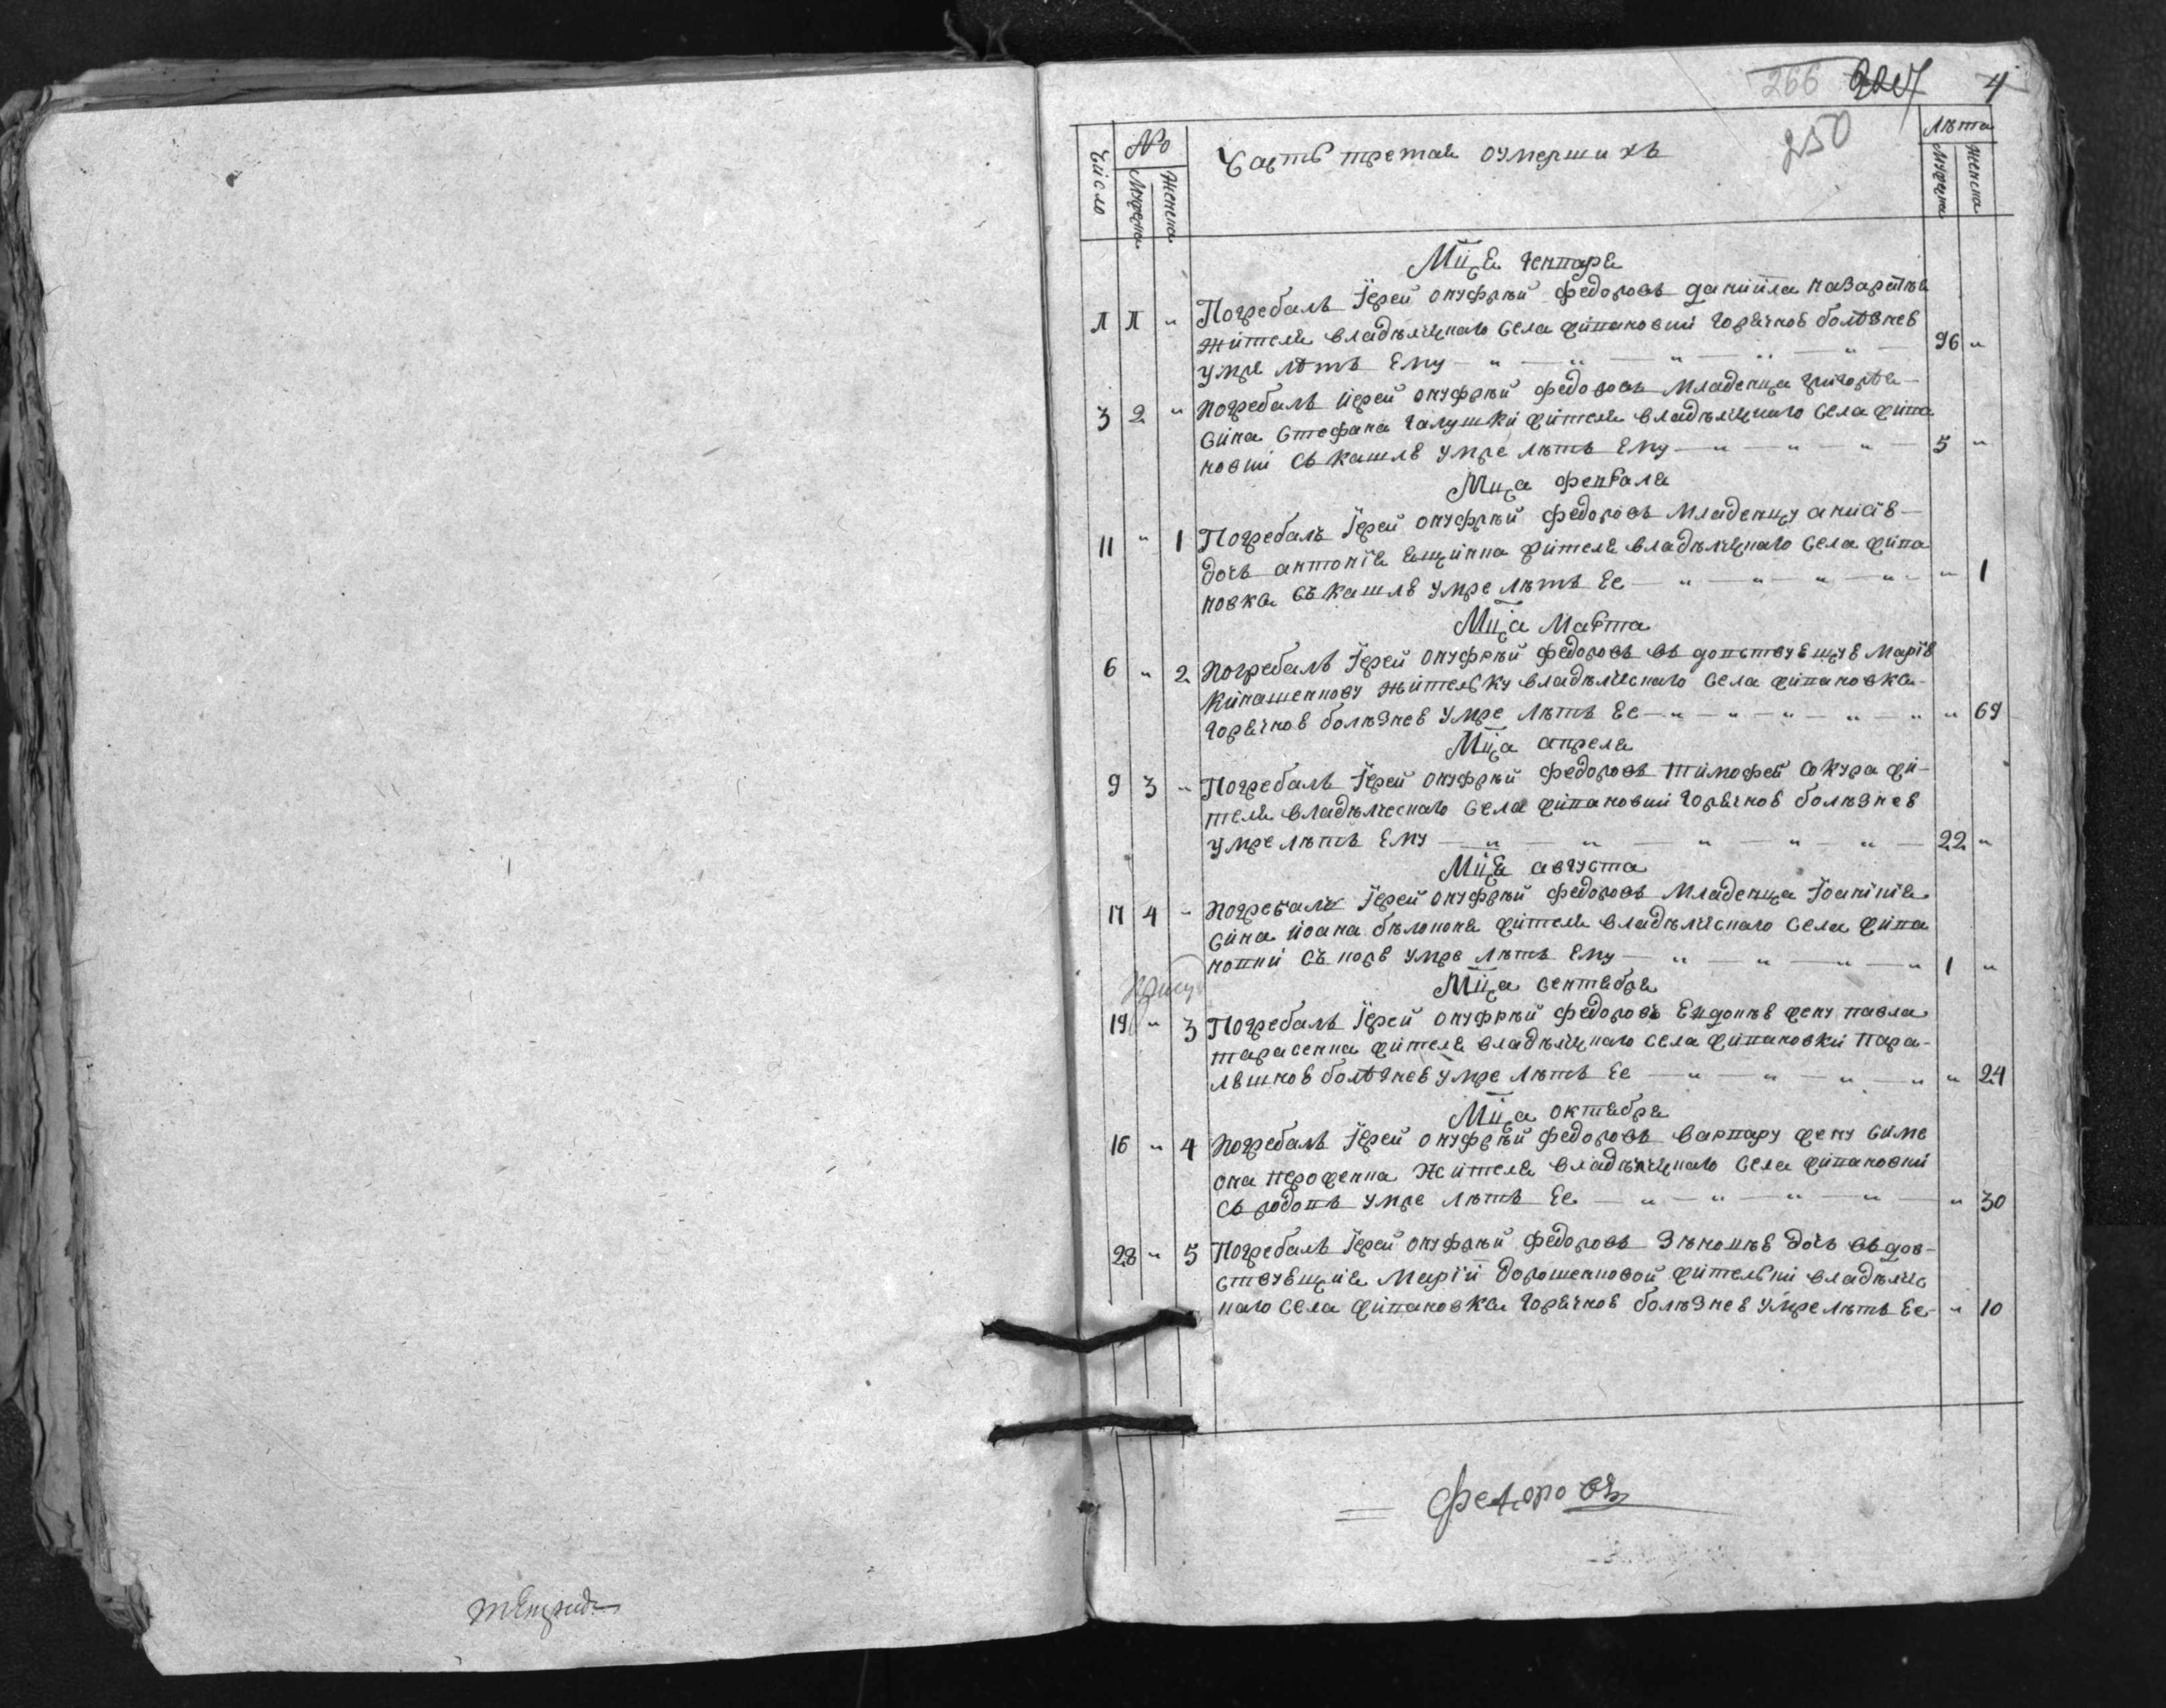 266 227 4
250
Число № Часть третая оумершихъ Лѣта
Мужеска Женска Мужеска Женска
Мца Генъаря
1 1 „ Погребалъ Іерей Онуфрѣй Федоровъ Даніила Назарѣнка
жителя владѣлческаго села Жипановки горячкою болѣзнею
умре лѣтъ ему 96 „
3 2 „ Погребалъ Іерей Онуфрѣй Федоровъ младенца Григорія
сина Стефана Галушки жителя владѣлческаго села Жипа
новки съ кашлю умре лѣтъ ему 5 „
Мца Февраля
11 „ 1 Погребалъ Іерей Онуфрѣй Федоровъ младенцу
дочь Антонія жителя владѣлческаго села Жипа
новки съ кашлю умре лѣтъ ее „ 1
Мца Марта
6 „ 2 Погребалъ Іерей Онуфрѣй Федоровъ въдовствующую Марію
жителку владѣлческаго села Жипановки
горячкою болѣзнею умре лѣтъ ее „ 69
Мца Апреля
9 3 „ Погребалъ Іерей Онуфрѣй Федоровъ Тимофей Сокура жи-
теля владѣлческаго села Жипановки горячкою болѣзнею
умре лѣтъ ему 22 „
Мца Августа
17 4 „ Погребалъ Іерей Онуфрѣй Федоровъ младенца
сина Иоана Бѣлоконя жителя владѣлческаго села Жипа
новки съ корю умре лѣтъ ему 1 „
Мца Сентября
19 „ 3 Погребалъ Іерей Онуфрѣй Федоровъ жену Павла
Тарасенка жителя владѣлческаго села Жипановки пара-
лѣшною болѣзнею умре лѣтъ ее „ 24
Мца Октября
16 „ 4 Погребалъ Іерей Онуфрѣй Федоровъ Варвару жену Симе
она жителя владѣлческаго села Жипановки
съ родовъ умре лѣтъ ее „ 30
28 „ 5 Погребалъ Іерей Онуфрѣй Федоровъ дочь въдов-
ствующия Маріи Дорошенковой жителки владѣлчес
каго села Жипановки горячкою болѣзнею умре лѣтъ ее „ 10
Федоровъ